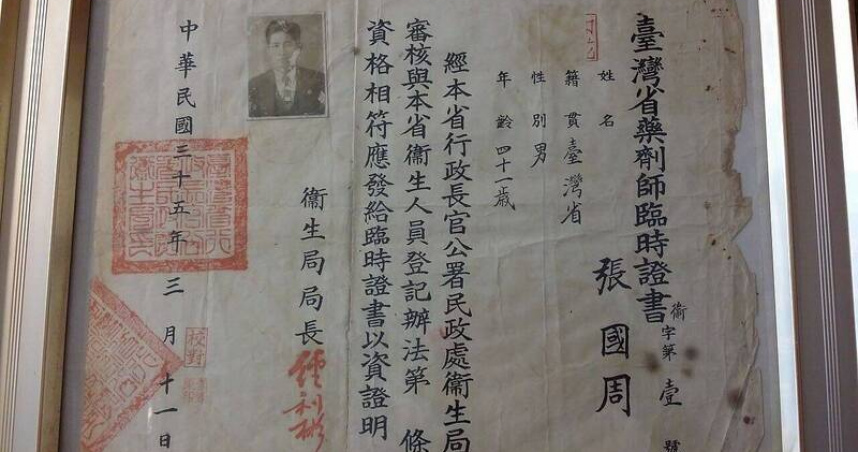 臺灣省藥劑師臨時證書
衛字第壹號
姓名 張國周
籍貫臺灣省
性別男
年齡四十一歲
經本省行政長官公署民政處衛生局
審核與本省衛生人員登記辦法第 條
資格相符應發給臨時證書以資證明
衛生局局長
中華民國三十五年三月十一日
校對